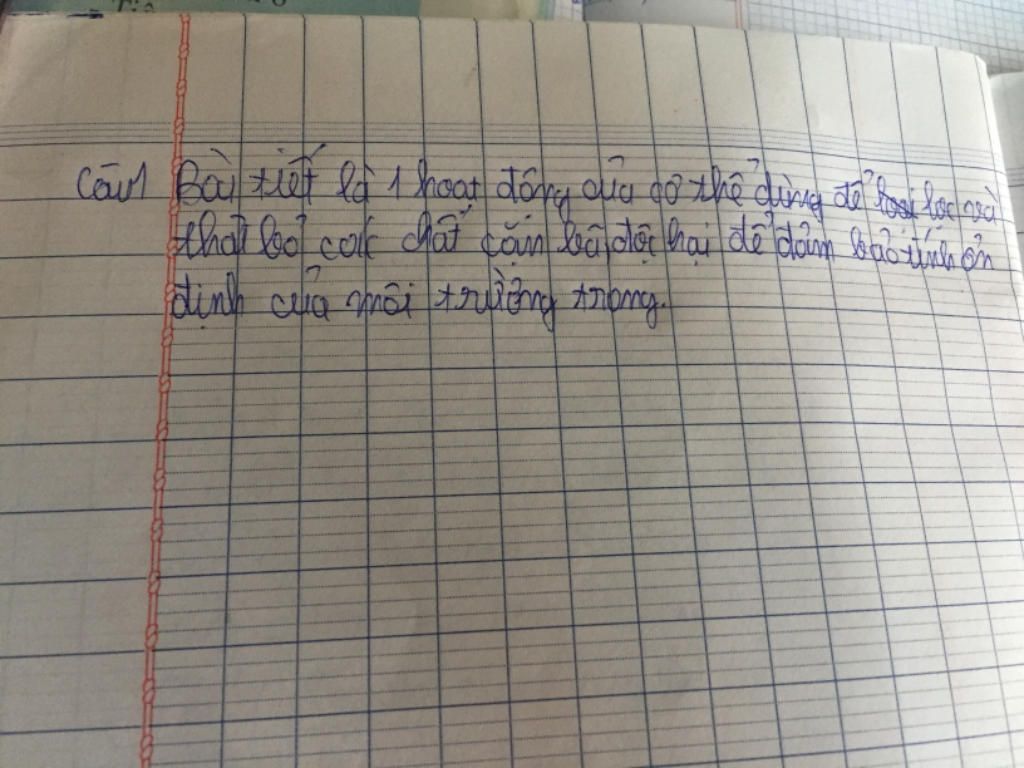 Câu1 Bài tiết là 1 hoạt động của cơ thể dùng để lọc và
thải bỏ các chất cặn bã, độc hại để đảm bảo tính ổn
định của môi trường trong.